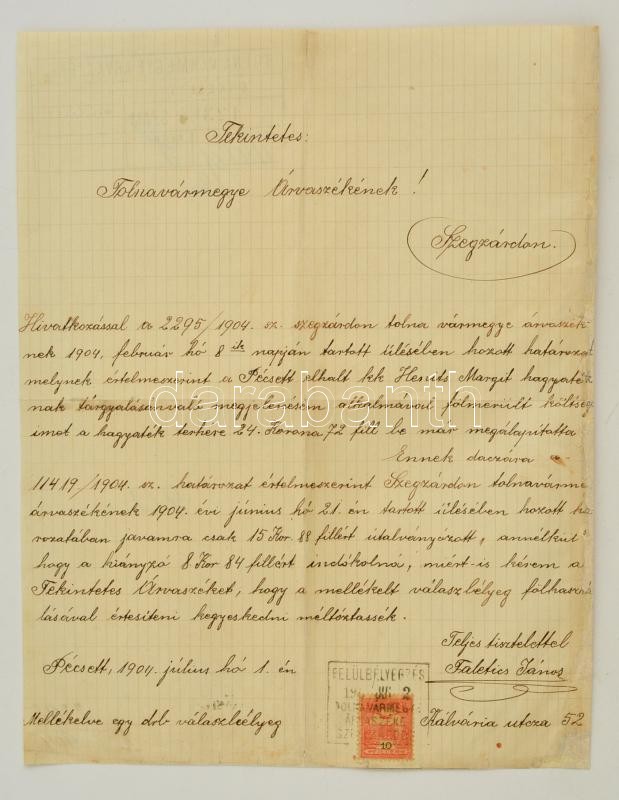 Tekintetes:
Tolnavármegye Árvaszékének!
Szegzárdon.
Hivatkozással a 2295/1904. sz. szegzárdon tolna vármegye árvaszék-
nek 1904, február hó 8 ik napján tartott ülésében hozott határozat
melynek értelmeszerint a Pécsett elhalt kk Henits Margit hagyaték
nak tárgyalásonvaló megjelenésem alkalmával fölmerült költsége
imet a hagyaték terhére 24. Korona 72 fill be már megálapitotta
Ennek daczára a
11419/1904. sz. határozat értelmeszerint Szegzárdon tolnavárme
árvaszékének 1904. évi június hó 21. én tartott ülésében hozott ha
rozatában javamra csak 15 Kor. 88 fillért útalványózott, annélkül
hogy a hiányzó 8. Kor 84 fillért indokolná, miért-is kérem a
Tekintetes Árvaszéket, hogy a mellékelt válaszbélyeg fölhaszná
lásával értesiteni kegyeskedni méltóztassék.
Teljes tisztelettel
Faletics János
Pécsett, 1904. július hó 1. én
Mellékelve egy drb válaszbélyeg
Kálvária utcza 52
FELÜLBÉLYEGZÉS
2
TOLNAVÁRMEGYE
ÁRVASZÉKE
10
darabanth